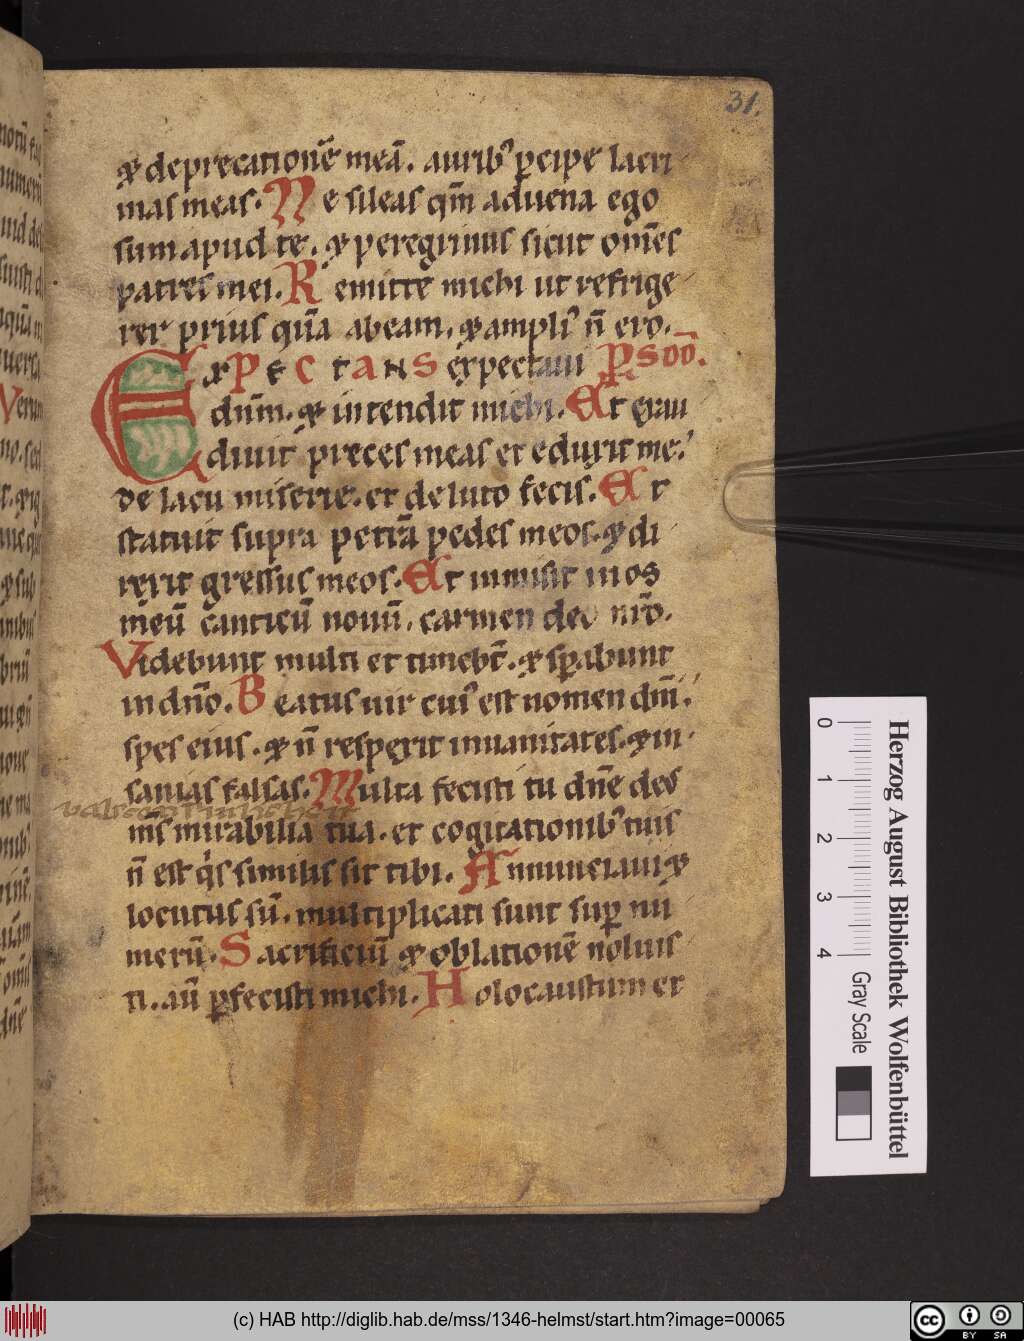 31.
⁊ deprecationē meā. aurib᾽ ꝑcipe lacri
mas meas. Ne sileas qm̄ aduena ego
sum apud te. ⁊ peregrinus sicut om̄es
patres mei. Remitte michi ut refrige
rer prius quā abeam. ⁊ ampli᾽ n̄ ero.
EXPECTANS expectaui
dnm̄. ⁊ intendit michi. Et exau
diuit preces meas et eduxit me
de lacu miserie. et de luto fecis. Et
statuit supra petrā pedes meos. ⁊ di
rexit gressus meos. Et inmisit in os
meū canticū nouū. carmen deo nr̄o.
Videbunt multi et timebt̄. ⁊ sꝑabunt
in dn̄o. Beatus uir cui᾽ est nomen dm̄.
spes eius. ⁊ n̄ respexit in uanitates. ⁊ in
sanias falsas. Multa fecisti tu dn̄e deus
ms̄ mirabilia tua. et cogitationib᾽ tuis
n̄ est qi̇s similis sit tibi. Annunciaui ⁊
locutus sū. multiplicati sunt suꝑ nu
merū. Sacrificiū ⁊ oblationē noluis
ti. aū ꝑfecisti michi. Holocaustum et
0 1 2 3 4
Gray Scale
Herzog August Bibliothek Wolfenbüttel
(c) HAB http://diglib.hab.de/mss/1346-helmst/start.htm?image=00065
cc BY SA